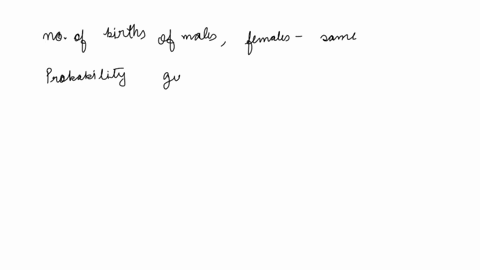 no. of births of males, females - same
Probability gu